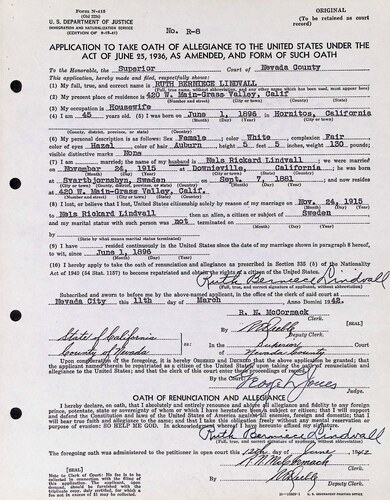 Form N-415
(Old 225e)
U. S. DEPARTMENT OF JUSTICE
IMMIGRATION AND NATURALIZATION SERVICE
(EDITION OF 9-15-41)
ORIGINAL
(To be retained as court record)
No. R-8
APPLICATION TO TAKE OATH OF ALLEGIANCE TO THE UNITED STATES UNDER THE
ACT OF JUNE 25, 1936, AS AMENDED, AND FORM OF SUCH OATH
To the Honorable, the Superior Court of Nevada County
This application, hereby made and filed, respectfully shows:
(1) My full, true, and correct name is RUTH BERNIECE LINDVALL
(Full, true name, without abbreviation, and any other name which has been used, must appear here)
(2) My present place of residence is 420 W. Main-Grass Valley, Calif
(Number and street) (City or town) (County) (State)
(3) My occupation is Housewife
(4) I am 45 years old. (5) I was born on June 1, 1896 in Hornitos, California
(Month) (Day) (Year) (City or town)
(County, district, province, or state) (Country)
(6) My personal description is as follows: Sex Female, color White, complexion Fair
color of eyes Hazel, color of hair Auburn, height 5 feet 5 inches, weight 130 pounds;
visible distinctive marks None
(7) I am married; the name of my husband is Nels Rickard Lindvall; we were married
on November 24, 1915 at Downieville, California; he was born at
Svartbjorsbyn, Sweden on Sept 7, 1881; and now resides
at 420 W. Main-Grass Valley, Calif.
(Number and street) (City or town) (County, district, province, or state) (Country)
(8) I lost, or believe that I lost, United States citizenship solely by reason of my marriage on Nov. 24, 1915
to Nels Rickard Lindvall then an alien, a citizen or subject of Sweden
and my marital status with such person was not terminated on
(State by what means marital status terminated)
(9) I have resided continuously in the United States since the date of my marriage shown in paragraph 8 hereof,
to wit, since June 1, 1896
(10) I hereby apply to take the oath of renunciation and allegiance as prescribed in Section 335 (b) of the Nationality
Act of 1940 (54 Stat. 1157) to become repatriated and obtain the rights of a citizen of the United States.
Ruth Berniece Lindvall
(Full, true, and correct signature of applicant, without abbreviation)
Subscribed and sworn to before me by the above-named applicant, in the office of the clerk of said court at
Nevada City this 11th day of March Anno Domini 1942.
R. N. McCormack
Clerk.
[SEAL]
Deputy Clerk.
State of California
County of Nevada
In the Superior
Court of Nevada County
Upon consideration of the foregoing, it is hereby ORDERED and DECREED that the above application be granted; that the
applicant named therein be repatriated as a citizen of the United States upon taking the oath of renunciation and
allegiance to the United States; and that the clerk of this court enter these proceedings of record.
Judge.
OATH OF RENUNCIATION AND ALLEGIANCE
I hereby declare, on oath, that I absolutely and entirely renounce and abjure all allegiance and fidelity to any foreign
prince, potentate, state or sovereignty of whom or which I have heretofore been a subject or citizen; that I will support
and defend the Constitution and laws of the United States of America against all enemies, foreign and domestic; that I
will bear true faith and allegiance to the same; and that I take this obligation freely without any mental reservation or
purpose of evasion: SO HELP ME GOD. In acknowledgment whereof I have hereunto affixed my signature.
Ruth Berniece Lindvall
(Full, true, and correct signature of applicant, without abbreviation)
The foregoing oath was administered to the petitioner in open court this 12th day of June 1942
R. N. McCormack
Clerk.
[SEAL]
Deputy Clerk.
Note to Clerk of Court: No fee is to be collected in connection with the filing of this application. The applicant upon request should be furnished with the triplicate copy, duly certified, for which a fee of not to exceed $1 may be collected.
U. S. GOVERNMENT PRINTING OFFICE